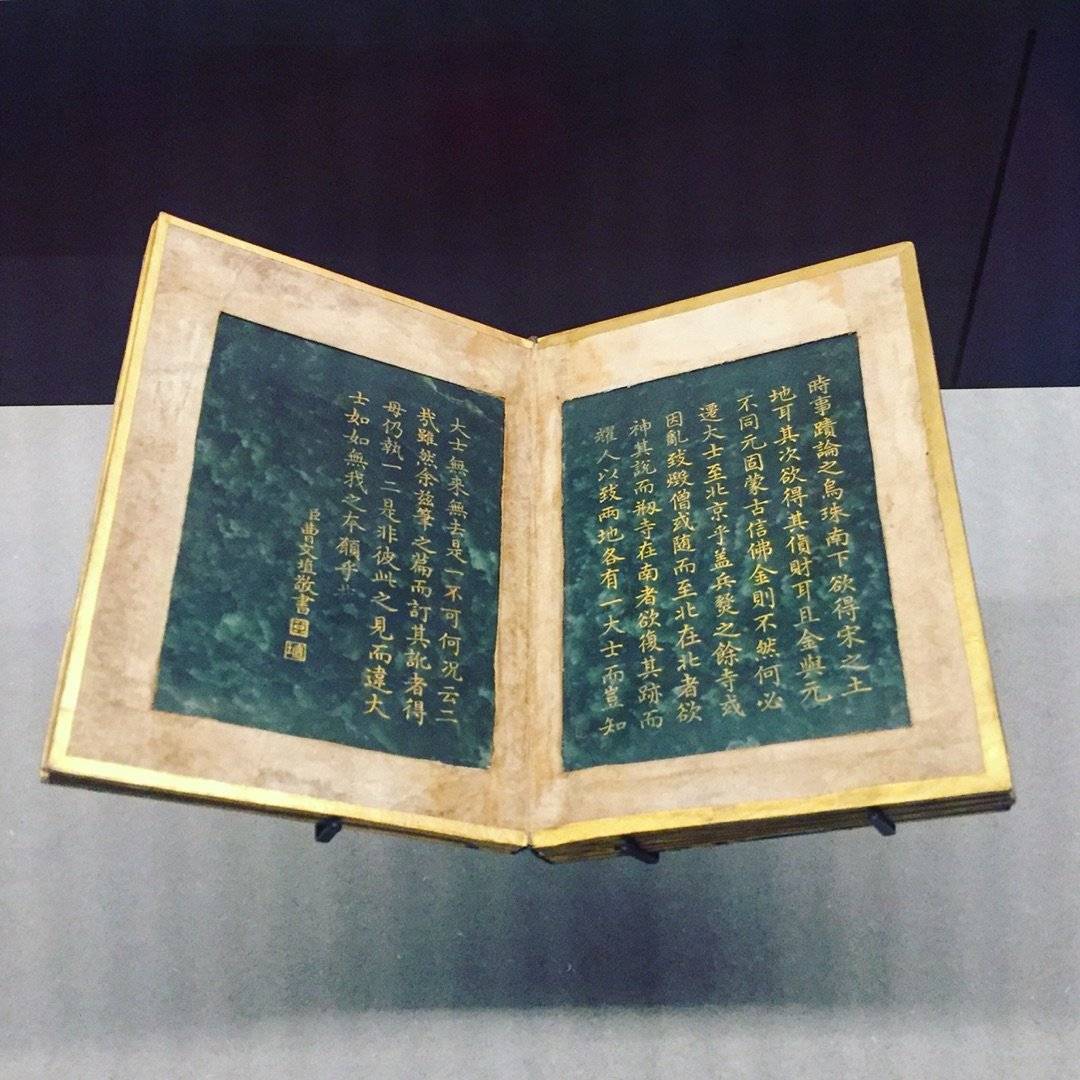 時事蹟論之烏珠南下欲得宋之土
地耳其次欲得其貨財耳且金與元
不同元固蒙古信佛金則不然何必
遷大士至北京乎盖兵燹之餘寺或
因亂致燬僧或随而至北在北者欲
神其說而剏寺在南者欲復其跡而
耀人以致兩地各有一大士而豈知
大士無来無去是一不可何况云二
㦲雖然余兹筆之篇而訂其訛者得
毋仍執一二是非彼此之見而違大
士如如無我之本願乎
臣曹文埴敬書